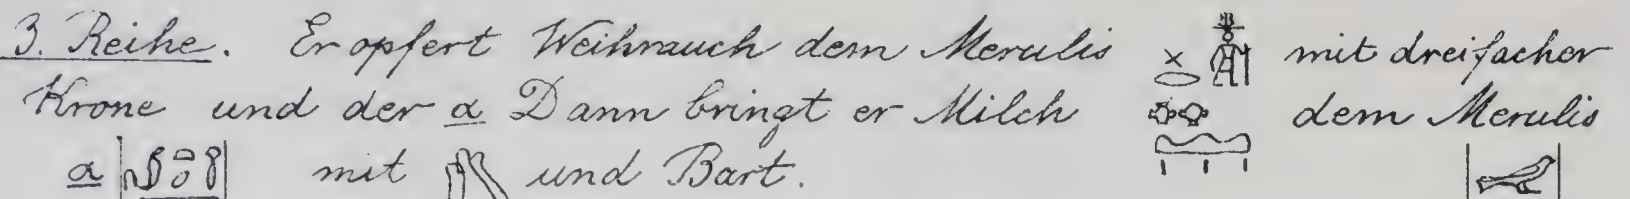 3. Reihe. Er opfert Weihrauch dem Merulis mit dreifacher
Krone und der α Dann bringt er Milch dem Merulis
α mit und Bart.